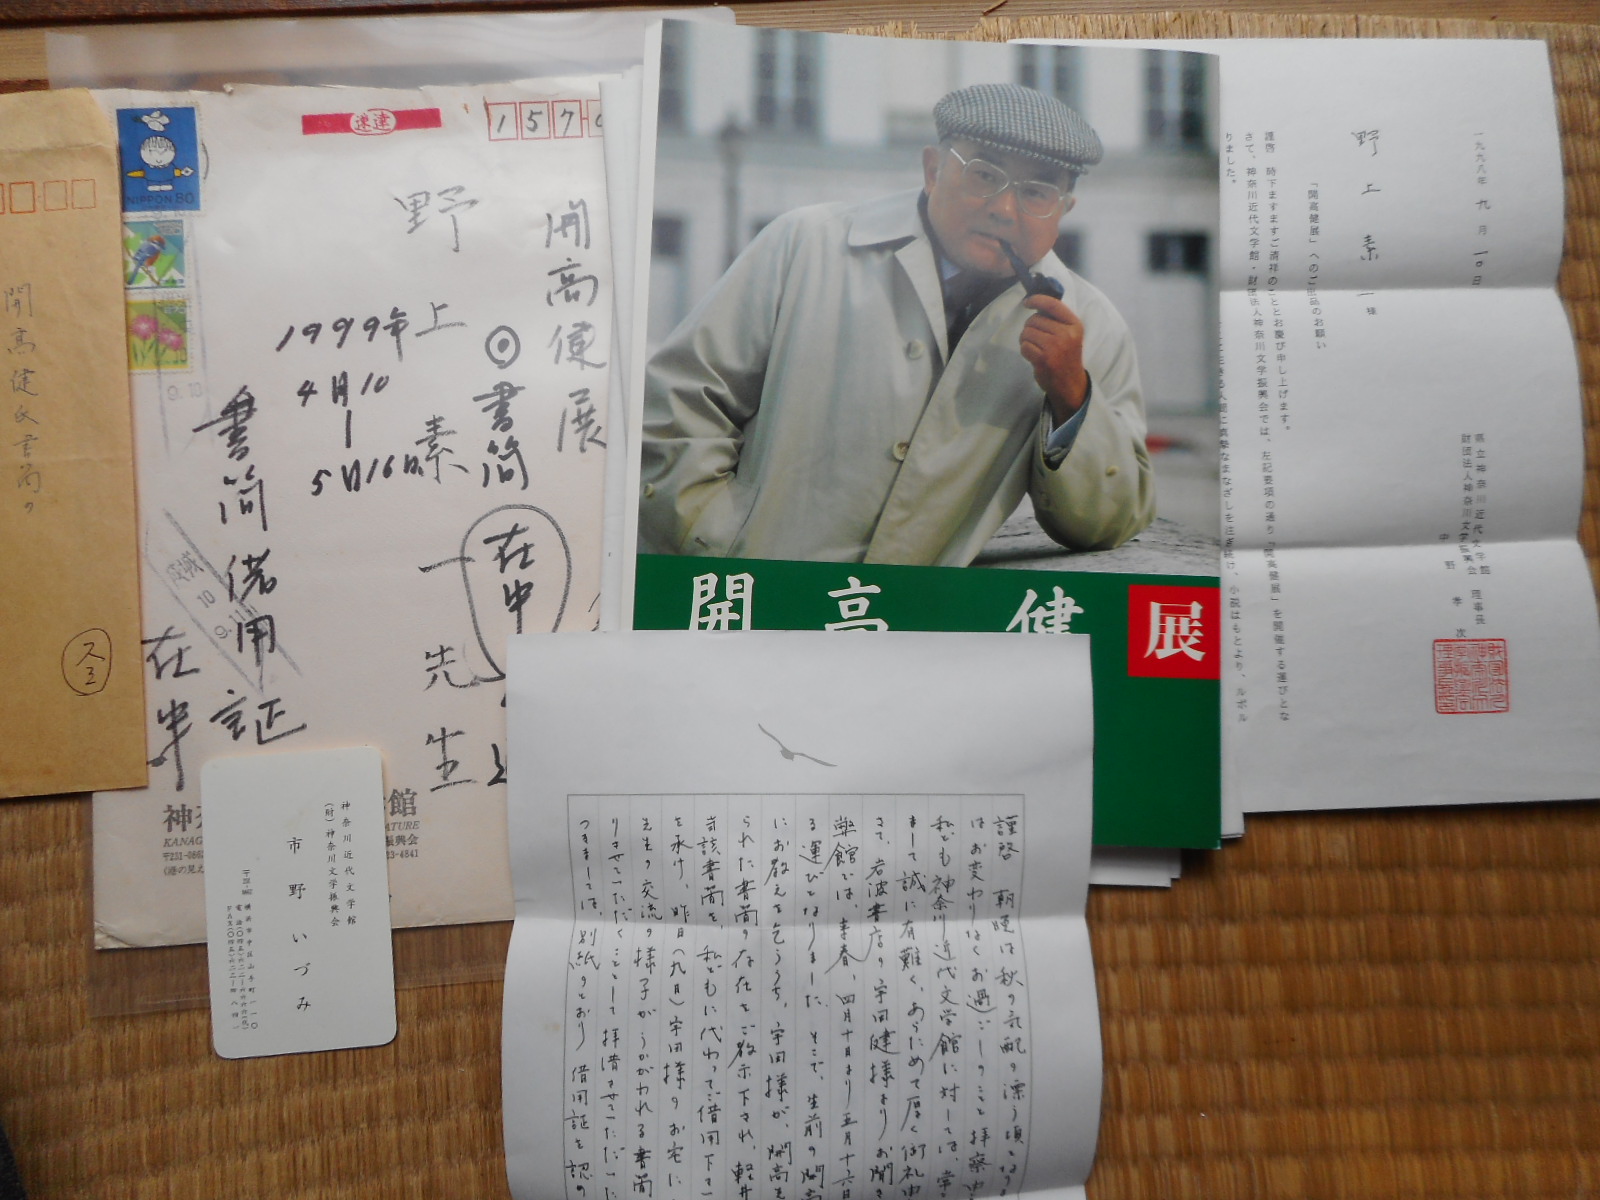 一九九八年九月一〇日
野上素一様
県立神奈川近代文学館
財団法人神奈川文学振興会 理事長
中野孝次
「開高健展」へのご出品のお願い
謹啓 時下ますますご清祥のこととお慶び申し上げます。
さて、神奈川近代文学館・財団法人神奈川文学振興会では、左記要項の通り「開高健展」を開催する運びとな
りました。
人間に真摯なまなざしを注ぎ続け、小説はもとより、ルポル
開高健
展
速達
157
NIPPON 80
開高健展
◎書簡
在中
野上素一先生
1999年
4月10
5月16日
書簡借用証
在中
神
館
KANAG
ATURE
振興会
〒231-0862
23-4841
開高健氏書簡の
神奈川近代文学館
(財)神奈川文学振興会
市野いづみ
横浜市中区山手町一一〇
謹啓 朝晩は秋の気配の漂う頃となり
はお変わりなくお過ごしのことと拝察申
私ども神奈川近代文学館に対しては、常
まして誠に有難く、あらためて厚く御礼申
さて、岩波書店の宇田健様よりお聞き
弊館では、来春、四月十日より五月十六日
る運びとなりました。そこで、生前の開高
にお教えを乞ううち、宇田様が、開高先
られた書簡の存在をご教示下され、軽井
当該書簡を、私どもに代わってご借用下さ
を承け、昨日(九月)宇田様のお宅に
先生の交流の様子がうかがわれる書簡
りさせていただくこととして拝借させていただいた
つきましては、別紙のとおり 借用証を認め